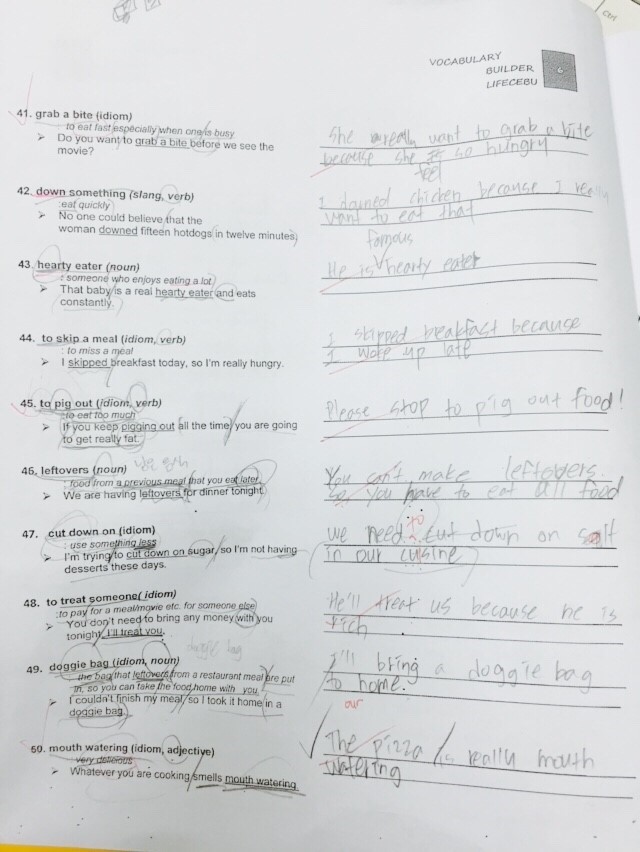 Ctrl
VOCABULARY
BUILDER
LIFECEBU
6
41. grab a bite (idiom)
to eat fast especially when one is busy
➤ Do you want to grab a bite before we see the
movie?
She really want to grab a bite
because she is so hungry
feel
42. down something (slang, verb)
:eat quickly
➤ No one could believe that the
woman downed fifteen hotdogs in twelve minutes
I downed chicken because I really
want to eat that
43. hearty eater (noun)
: someone who enjoys eating a lot
➤ That baby is a real hearty eater and eats
constantly.
famous
He is hearty eater
44. to skip a meal (idiom, verb)
: to miss a meal
➤ I skipped breakfast today, so I'm really hungry.
I skipped breakfast because
I woke up late
45. to pig out (idiom, verb)
:to eat too much
➤ If you keep pigging out all the time, you are going
to get really fat.
Please stop to pig out food!
46. leftovers (noun)
: food from a previous meal that you eat later
➤ We are having leftovers for dinner tonight.
You can't make leftovers.
So you have to eat all food
47. cut down on (idiom)
: use something less
➤ I'm trying to cut down on sugar, so I'm not having
desserts these days.
to
we need cut down on salt
in our cuisine
48. to treat someone( idiom)
:to pay for a meal/movie etc. for someone else)
➤ You don't need to bring any money with you
tonight, I'll treat you.
He'll treat us because he is
rich
doggie bag
49. doggie bag (idiom, noun)
the bag that leftovers from a restaurant meal are put
in, so you can take the food home with you.
➤ I couldn't finish my meal, so I took it home in a
doggie bag.
I'll bring a doggie bag
to home.
our
50. mouth watering (idiom, adjective)
very delicious
➤ Whatever you are cooking smells mouth watering
The pizza is really mouth
watering